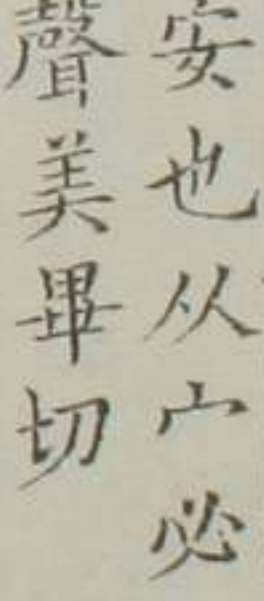 安也从宀必
聲美畢切